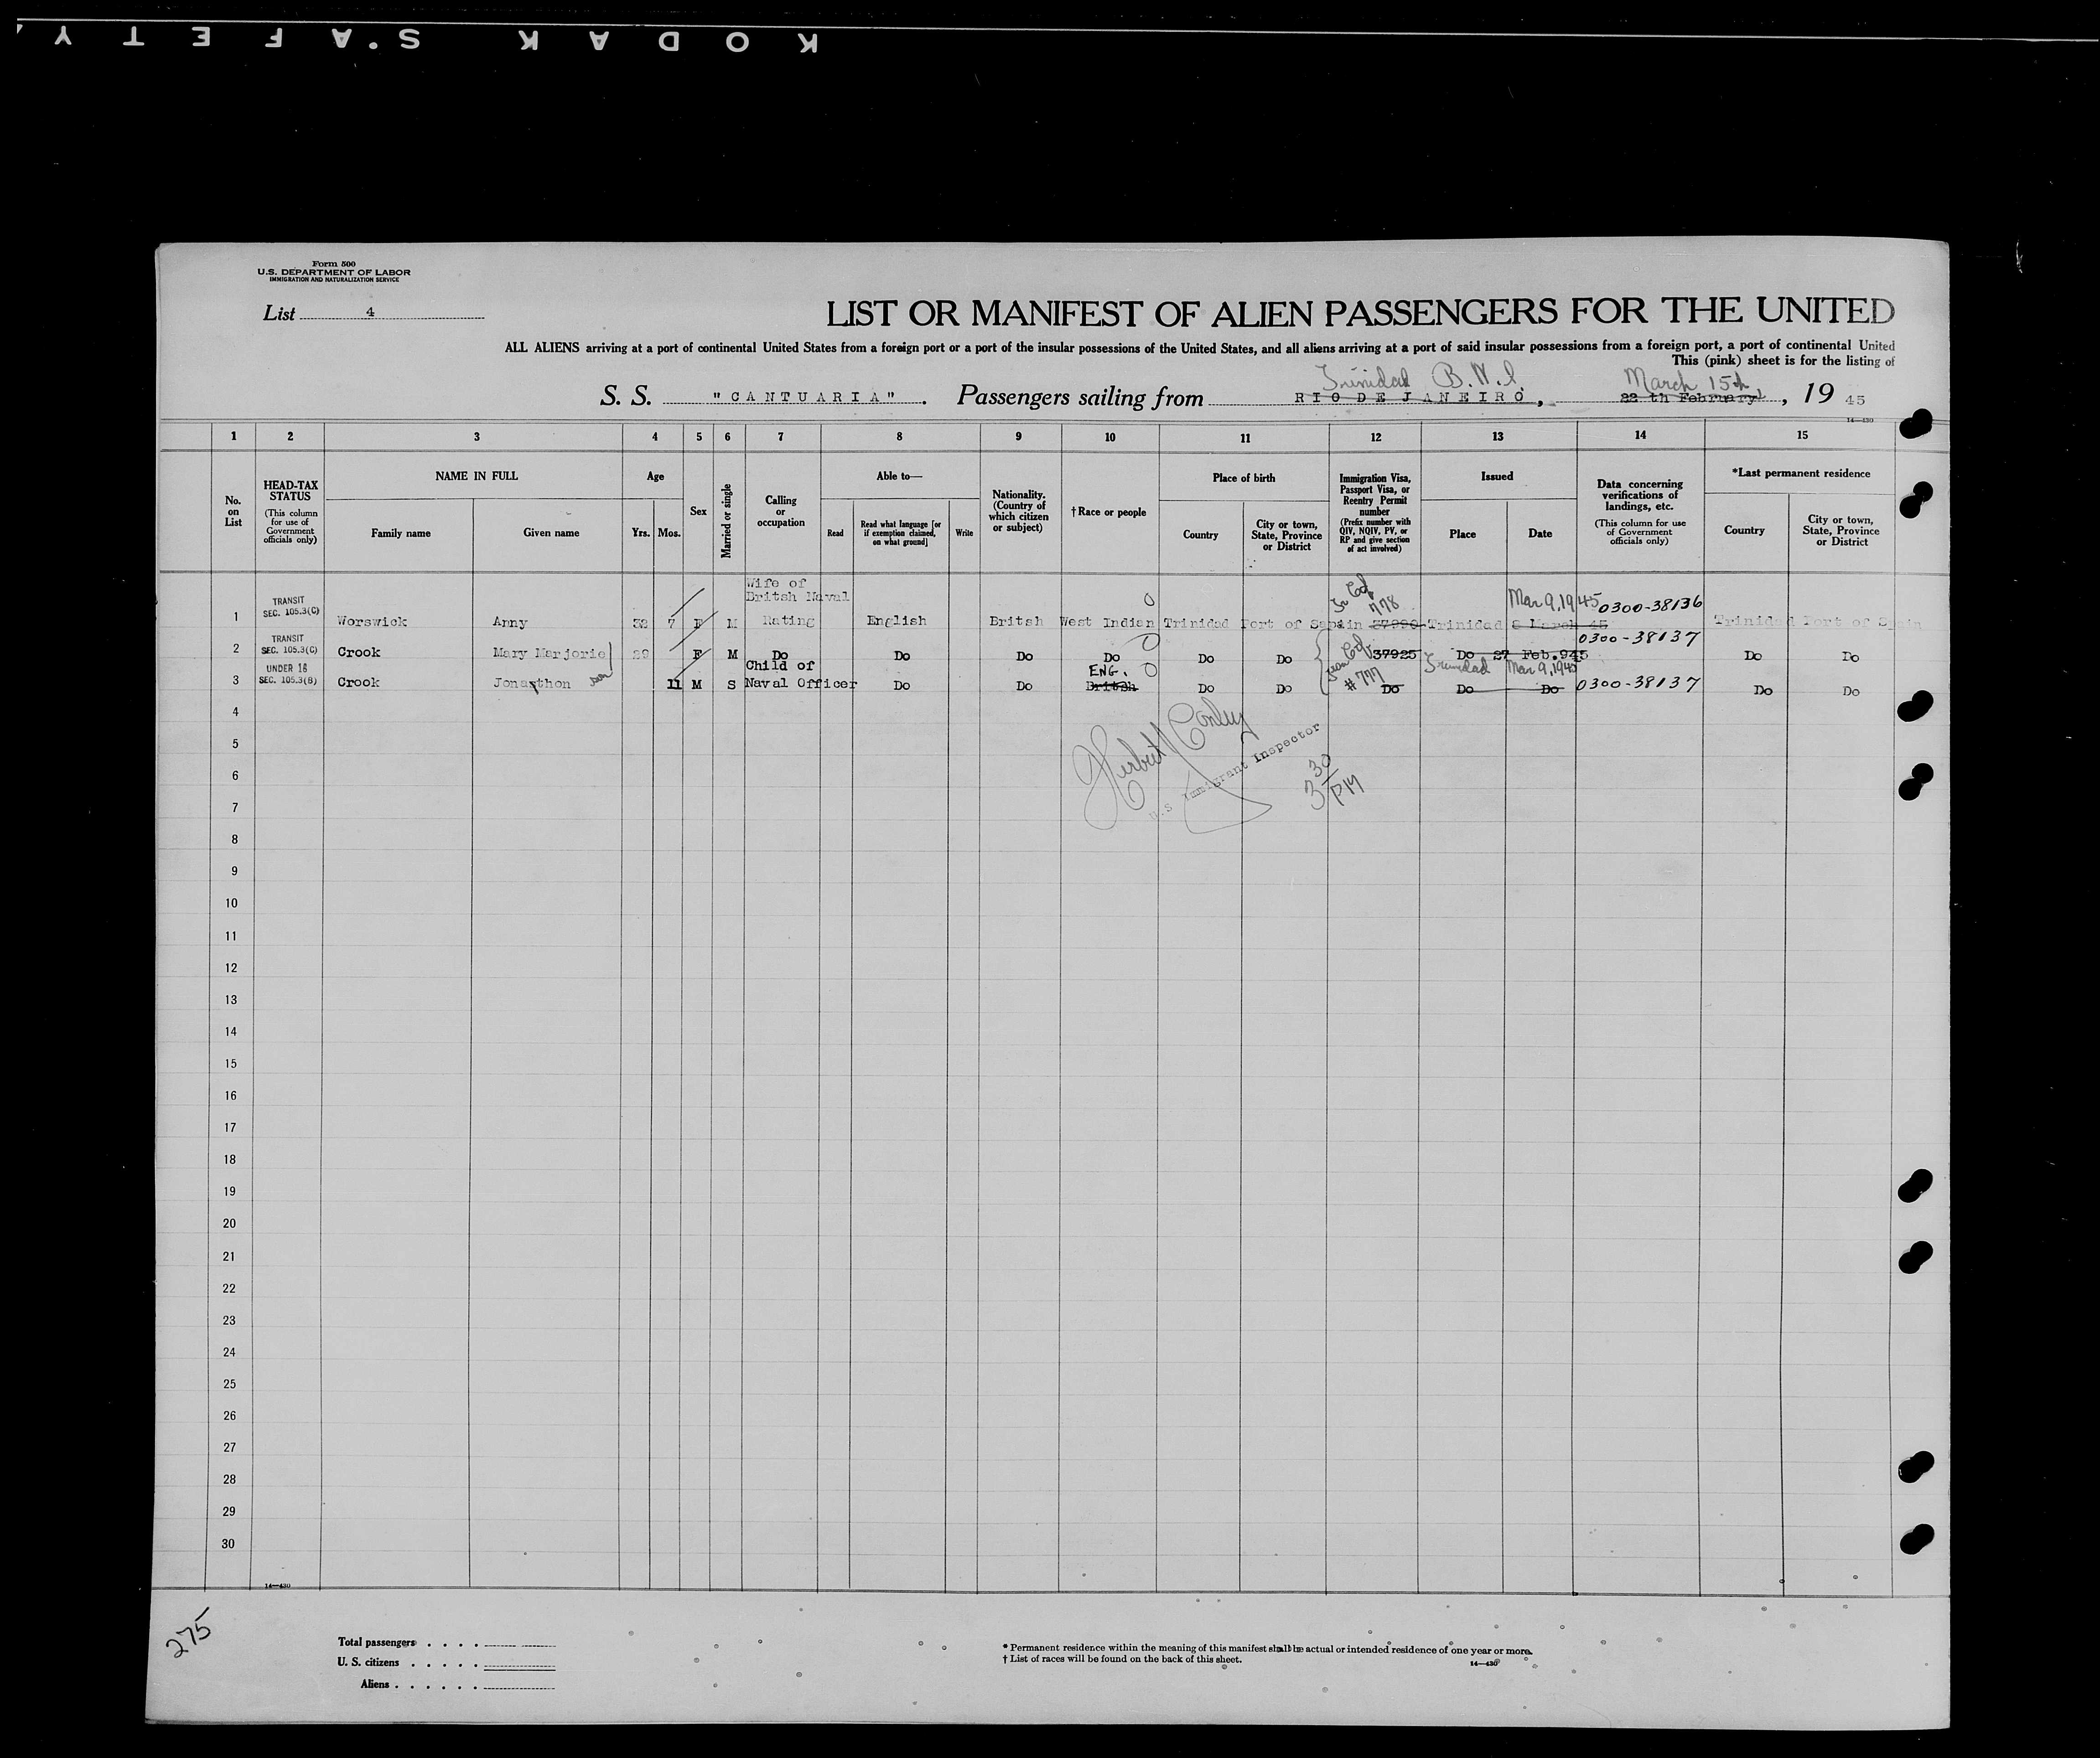 KODAK S'AFETY
Form 500
U.S. DEPARTMENT OF LABOR
IMMIGRATION AND NATURALIZATION SERVICE
List 4
LIST OR MANIFEST OF ALIEN PASSENGERS FOR THE UNITED
ALL ALIENS arriving at a port of continental United States from a foreign port or a port of the insular possessions of the United States, and all aliens arriving at a port of said insular possessions from a foreign port, a port of continental United
This (pink) sheet is for the listing of
Trinidad B.W.I. March 15th,
S. S. "CANTUARIA". Passengers sailing from RIO DE JANEIRO, 22 th February, 19 45
14—430
1 2 3 4 5 6 7 8 9 10 11 12 13 14 15
No. on List
HEAD-TAX STATUS
(This column for use of Government officials only)
NAME IN FULL
Family name
Given name
Age
Yrs. Mos.
Sex
Married or single
Calling or occupation
Able to—
Read
Read what language [or if exemption claimed, on what ground]
Write
Nationality. (Country of which citizen or subject)
†Race or people
Place of birth
Country
City or town, State, Province or District
Immigration Visa, Passport Visa, or Reentry Permit number
(Prefix number with QIV, NQIV, PV, or RP and give section of act involved)
Issued
Place
Date
Data concerning verifications of landings, etc.
(This column for use of Government officials only)
*Last permanent residence
Country
City or town, State, Province or District
1 TRANSIT SEC. 105.3(C) Worswick Anny 38 7 F M Wife of Britsh Naval Rating English Britsh West Indian Trinidad Port of Sapain 778 Trinidad 8 March 45 Mar 9,1945 0300-38136 Trinidad Port of Spain
2 TRANSIT SEC. 105.3(C) Crook Mary Marjorie 29 F M Do Do Do Do Do Do 37925 Do 27 Feb.945 0300-38137 Do Do
3 UNDER 16 SEC. 105.3(B) Crook Jonasthon son 11 M S Child of Naval Officer Do Do ENG. Britsh Do Do #777 Do Trinidad Do Mar 9,1945 Do 0300-38137 Do Do
4
5
6
7
8
9
10
11
12
13
14
15
16
17
18
19
20
21
22
23
24
25
26
27
28
29
30
U.S Immigrant Inspector
3 30 PM
14—430
275
Total passengers
U. S. citizens
Aliens
* Permanent residence within the meaning of this manifest shall be actual or intended residence of one year or more.
† List of races will be found on the back of this sheet.
14—430